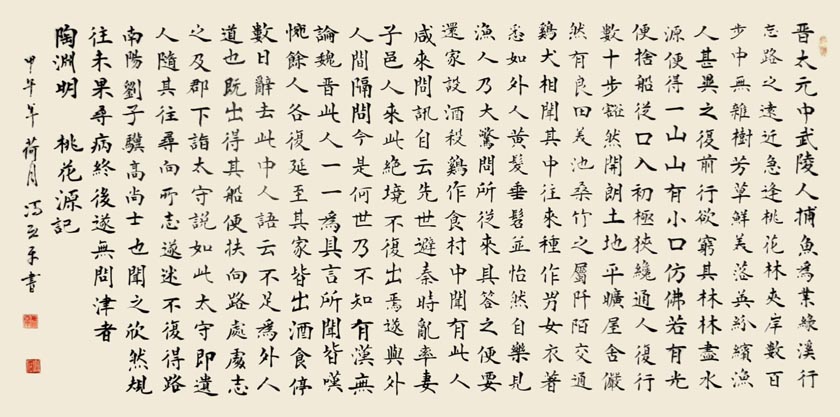 晋太元中武陵人捕魚為業緣溪行
忘路之遠近忽逢桃花林夾岸數百
步中無雜樹芳草鮮美落英紛繽漁
人甚異之復前行欲窮其林林盡水
源便得一山山有小口仿佛若有光
便捨船從口入初極狹纔通人復行
數十步豁然開朗土地平曠屋舍儼
然有良田美池桑竹之屬阡陌交通
鷄犬相聞其中往來種作男女衣著
悉如外人黄髮垂髫並怡然自樂見
漁人乃大驚問所從來具答之便要
還家設酒殺鷄作食村中聞有此人
咸來問訊自云先世避秦時亂率妻
子邑人來此絶境不復出焉遂與外
人間隔問今是何世乃不知有漢無
論魏晋此人一一為具言所聞皆嘆
惋餘人各復延至其家皆出酒食停
數日辭去此中人語云不足為外人
道也既出得其船便扶向路處處志
之及郡下詣太守説如此太守即遣
人隨其往尋向所志遂迷不復得路
南陽劉子驥高尚士也聞之欣然規
往未果尋病終後遂無問津者
陶淵明 桃花源記
甲午年荷月 馮書